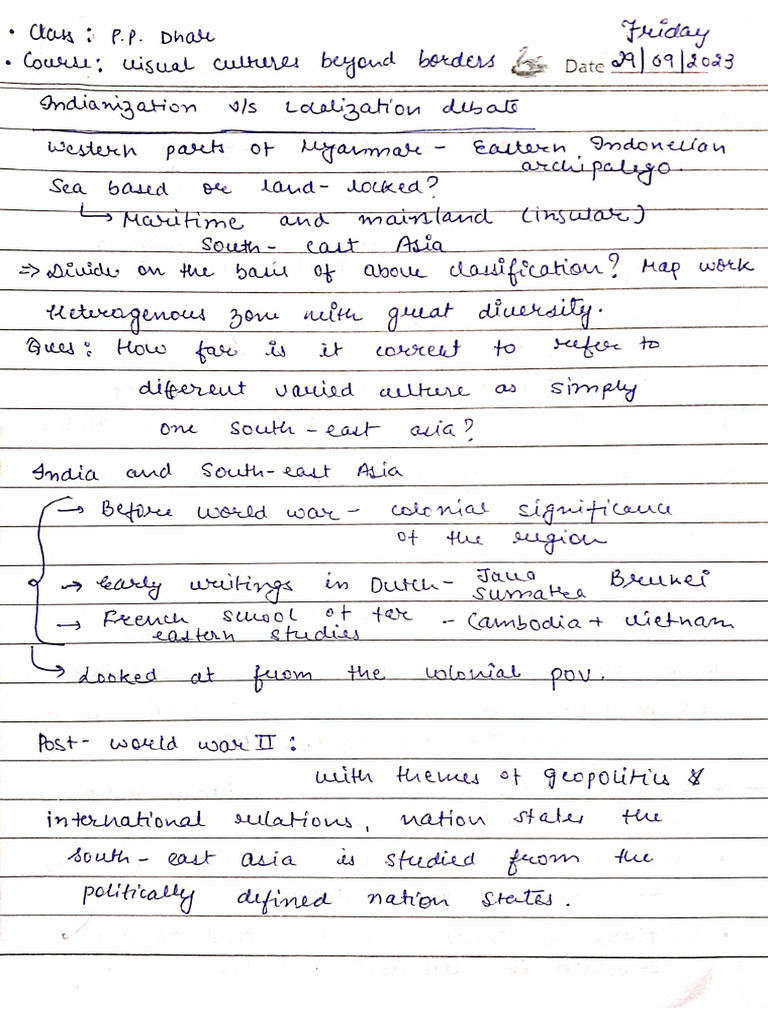 Friday
• Class : P.P. Dhar
• Course: visual cultures beyond borders Date 29/09/2023
Indianization v/s Localization debate
Western parts of Myanmar - Eastern Indonesian
archipalego.
Sea based or land-locked?
↳ Maritime and mainland (insular)
South-east Asia
⇒ Divide on the basis of above classification? Map work
Heterogenous zone with great diversity.
Ques: How far is it correct to refer to
different varied culture as simply
one south-east asia?
India and South-east Asia
→ Before world war - colonial significance
of the region
→ early writings in Dutch - Java Brunei
Sumatra
→ French school of far - Cambodia + Vietnam
eastern studies
↳ Looked at from the colonial pov.
Post-world war II :
with themes of geopolitics &
international relations, nation states the
south-east asia is studied from the
politically defined nation states.